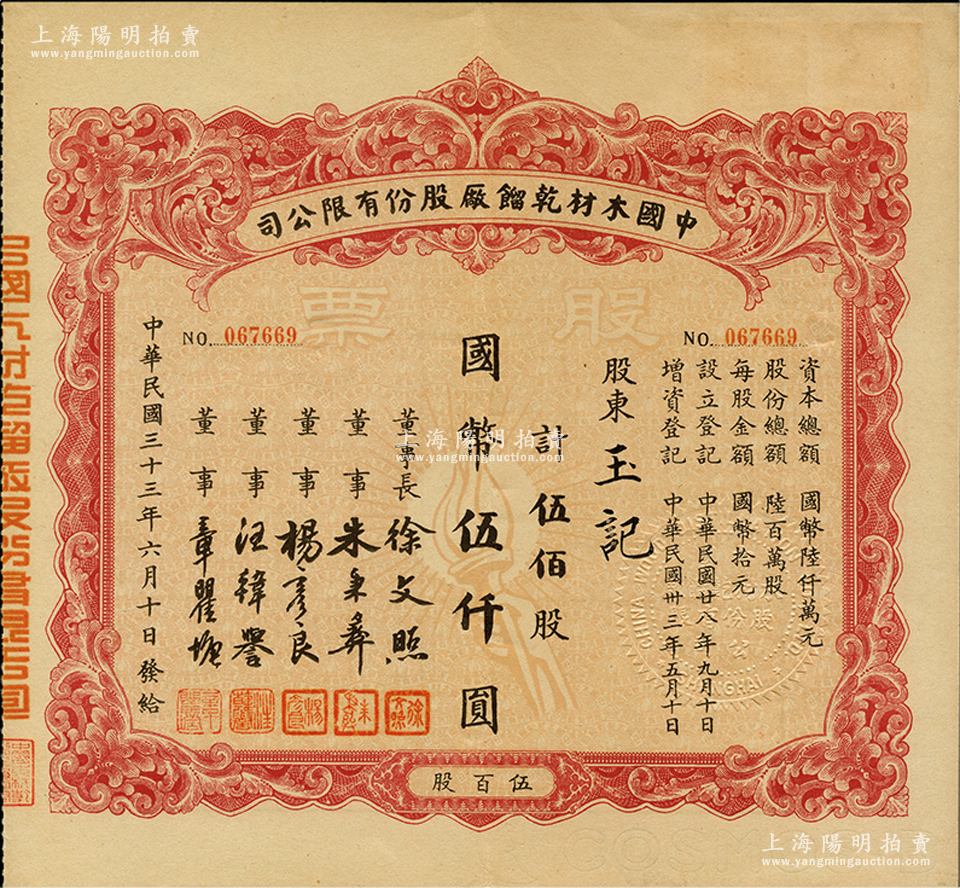 上海陽明拍賣
www.yangmingauction.com
中國木材乾餾廠股份有限公司
股票
NO. 067669
NO. 067669
資本總額 國幣陸仟萬元
股份總額 陸百萬股
每股金額 國幣拾元
設立登記 中華民國廿八年九月十日
增資登記 中華民國卅三年五月十日
股東 玉記
計伍佰股
國幣伍仟圓
董事長 徐文照
董事 朱秉彝
董事 楊彥良
董事 汪緯譽
董事 章瞿塘
中華民國三十三年六月十日發給
伍百股
上海陽明拍賣
www.yangmingauction.com
上海陽明拍賣
www.yangmingauction.com